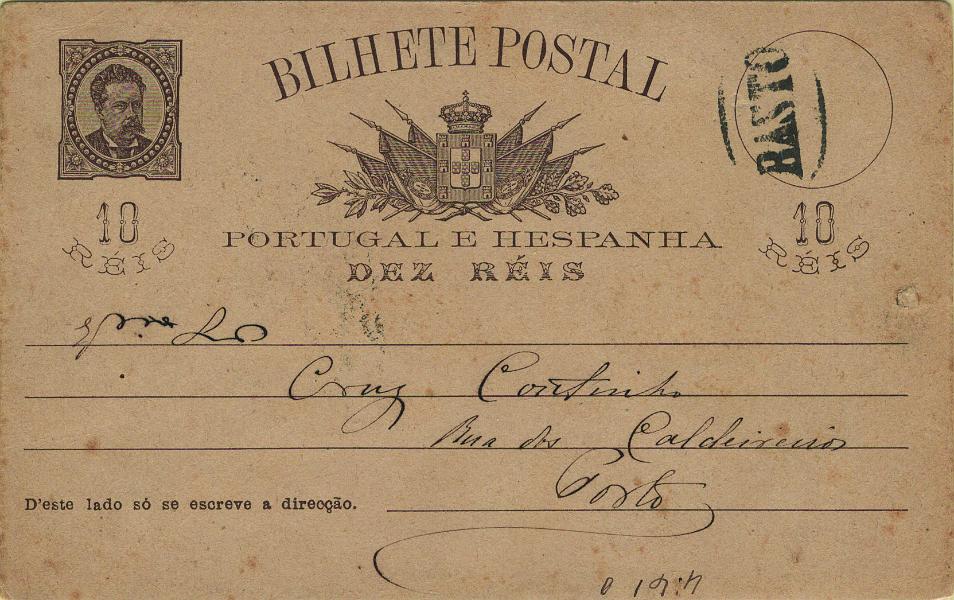 BILHETE POSTAL
BASTO
10 RÉIS
10 RÉIS
PORTUGAL E HESPANHA
DEZ RÉIS
Cruz Coutinho
Rua dos Caldeireiros
Porto
D'este lado só se escreve a direcção.